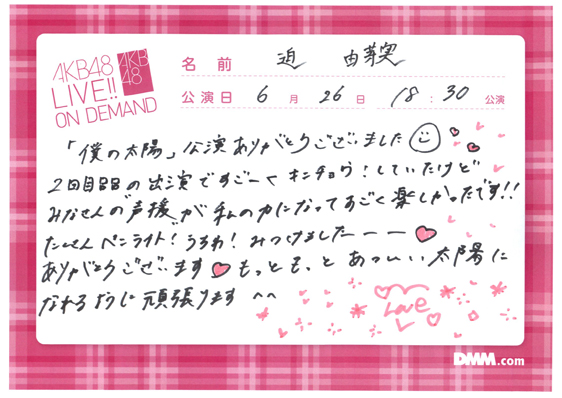 AKB48
LIVE!!
ON DEMAND
AKB
48
名前 迫 由芽実
公演日 6月26日 18:30 公演
「僕の太陽」公演ありがとうございました
2回目の出演ですごーくキンチョウ!していたけど
みなさんの声援が私の力になってすごく楽しかったです!!
たくさんペンライト!うちわ!みつけましたーー
ありがとうございます もっともっとあつい太陽に
なれるように頑張ります ^^
Love
DMM.com